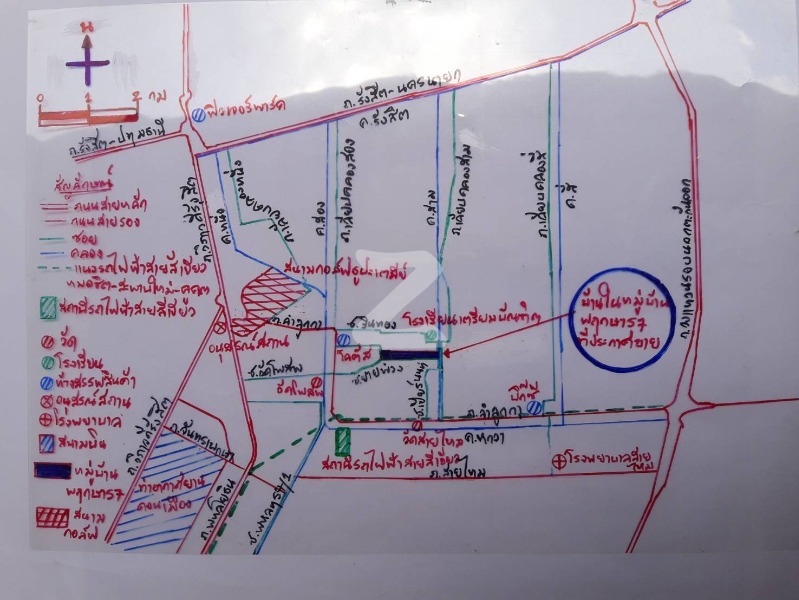 น
0 1 2 กม
ฟิวเจอร์พาร์ค
ถ.รังสิต-นครนายก
ค.รังสิต
ถ.รังสิต-ปทุมธานี
สัญลักษณ์
ถนนสายหลัก
ถนนสายรอง
ซอย
คลอง
แนวรถไฟฟ้าสายสีเขียว
หมอชิต-สะพานใหม่-คูคต
สถานีรถไฟฟ้าสายสีเขียว
วัด
โรงเรียน
ห้างสรรพสินค้า
อนุสรณ์สถาน
โรงพยาบาล
สนามบิน
หมู่บ้าน
พฤกษา 57
สนาม
กอล์ฟ
ค.หนึ่ง
ค.สอง
ถ.เลียบคลองสอง
ค.สาม
ถ.เลียบคลองสาม
ถ.เลียบคลองสี่
ค.สี่
ถ.วงแหวนรอบนอกตะวันออก
สนามกอล์ฟธูปะเตมีย์
ถ.ลำลูกกา
อนุสรณ์สถาน
โรงเรียนเตรียมบัณฑิต
โลตัส
ซ.สายพ่วง
ซ.วัดโพสพ
วัดโพสพ
บ้านในหมู่บ้าน
พฤกษา 57
ที่ประกาศขาย
บิ๊กซี
ถ.ลำลูกกา
วัดสายไหม
ค.หกวา
สถานีรถไฟฟ้าสายสีเขียว
ถ.สายไหม
โรงพยาบาลสายไหม
ถ.จันทรุเบกษา
ท่าอากาศยาน
ดอนเมือง
ถ.พหลโยธิน